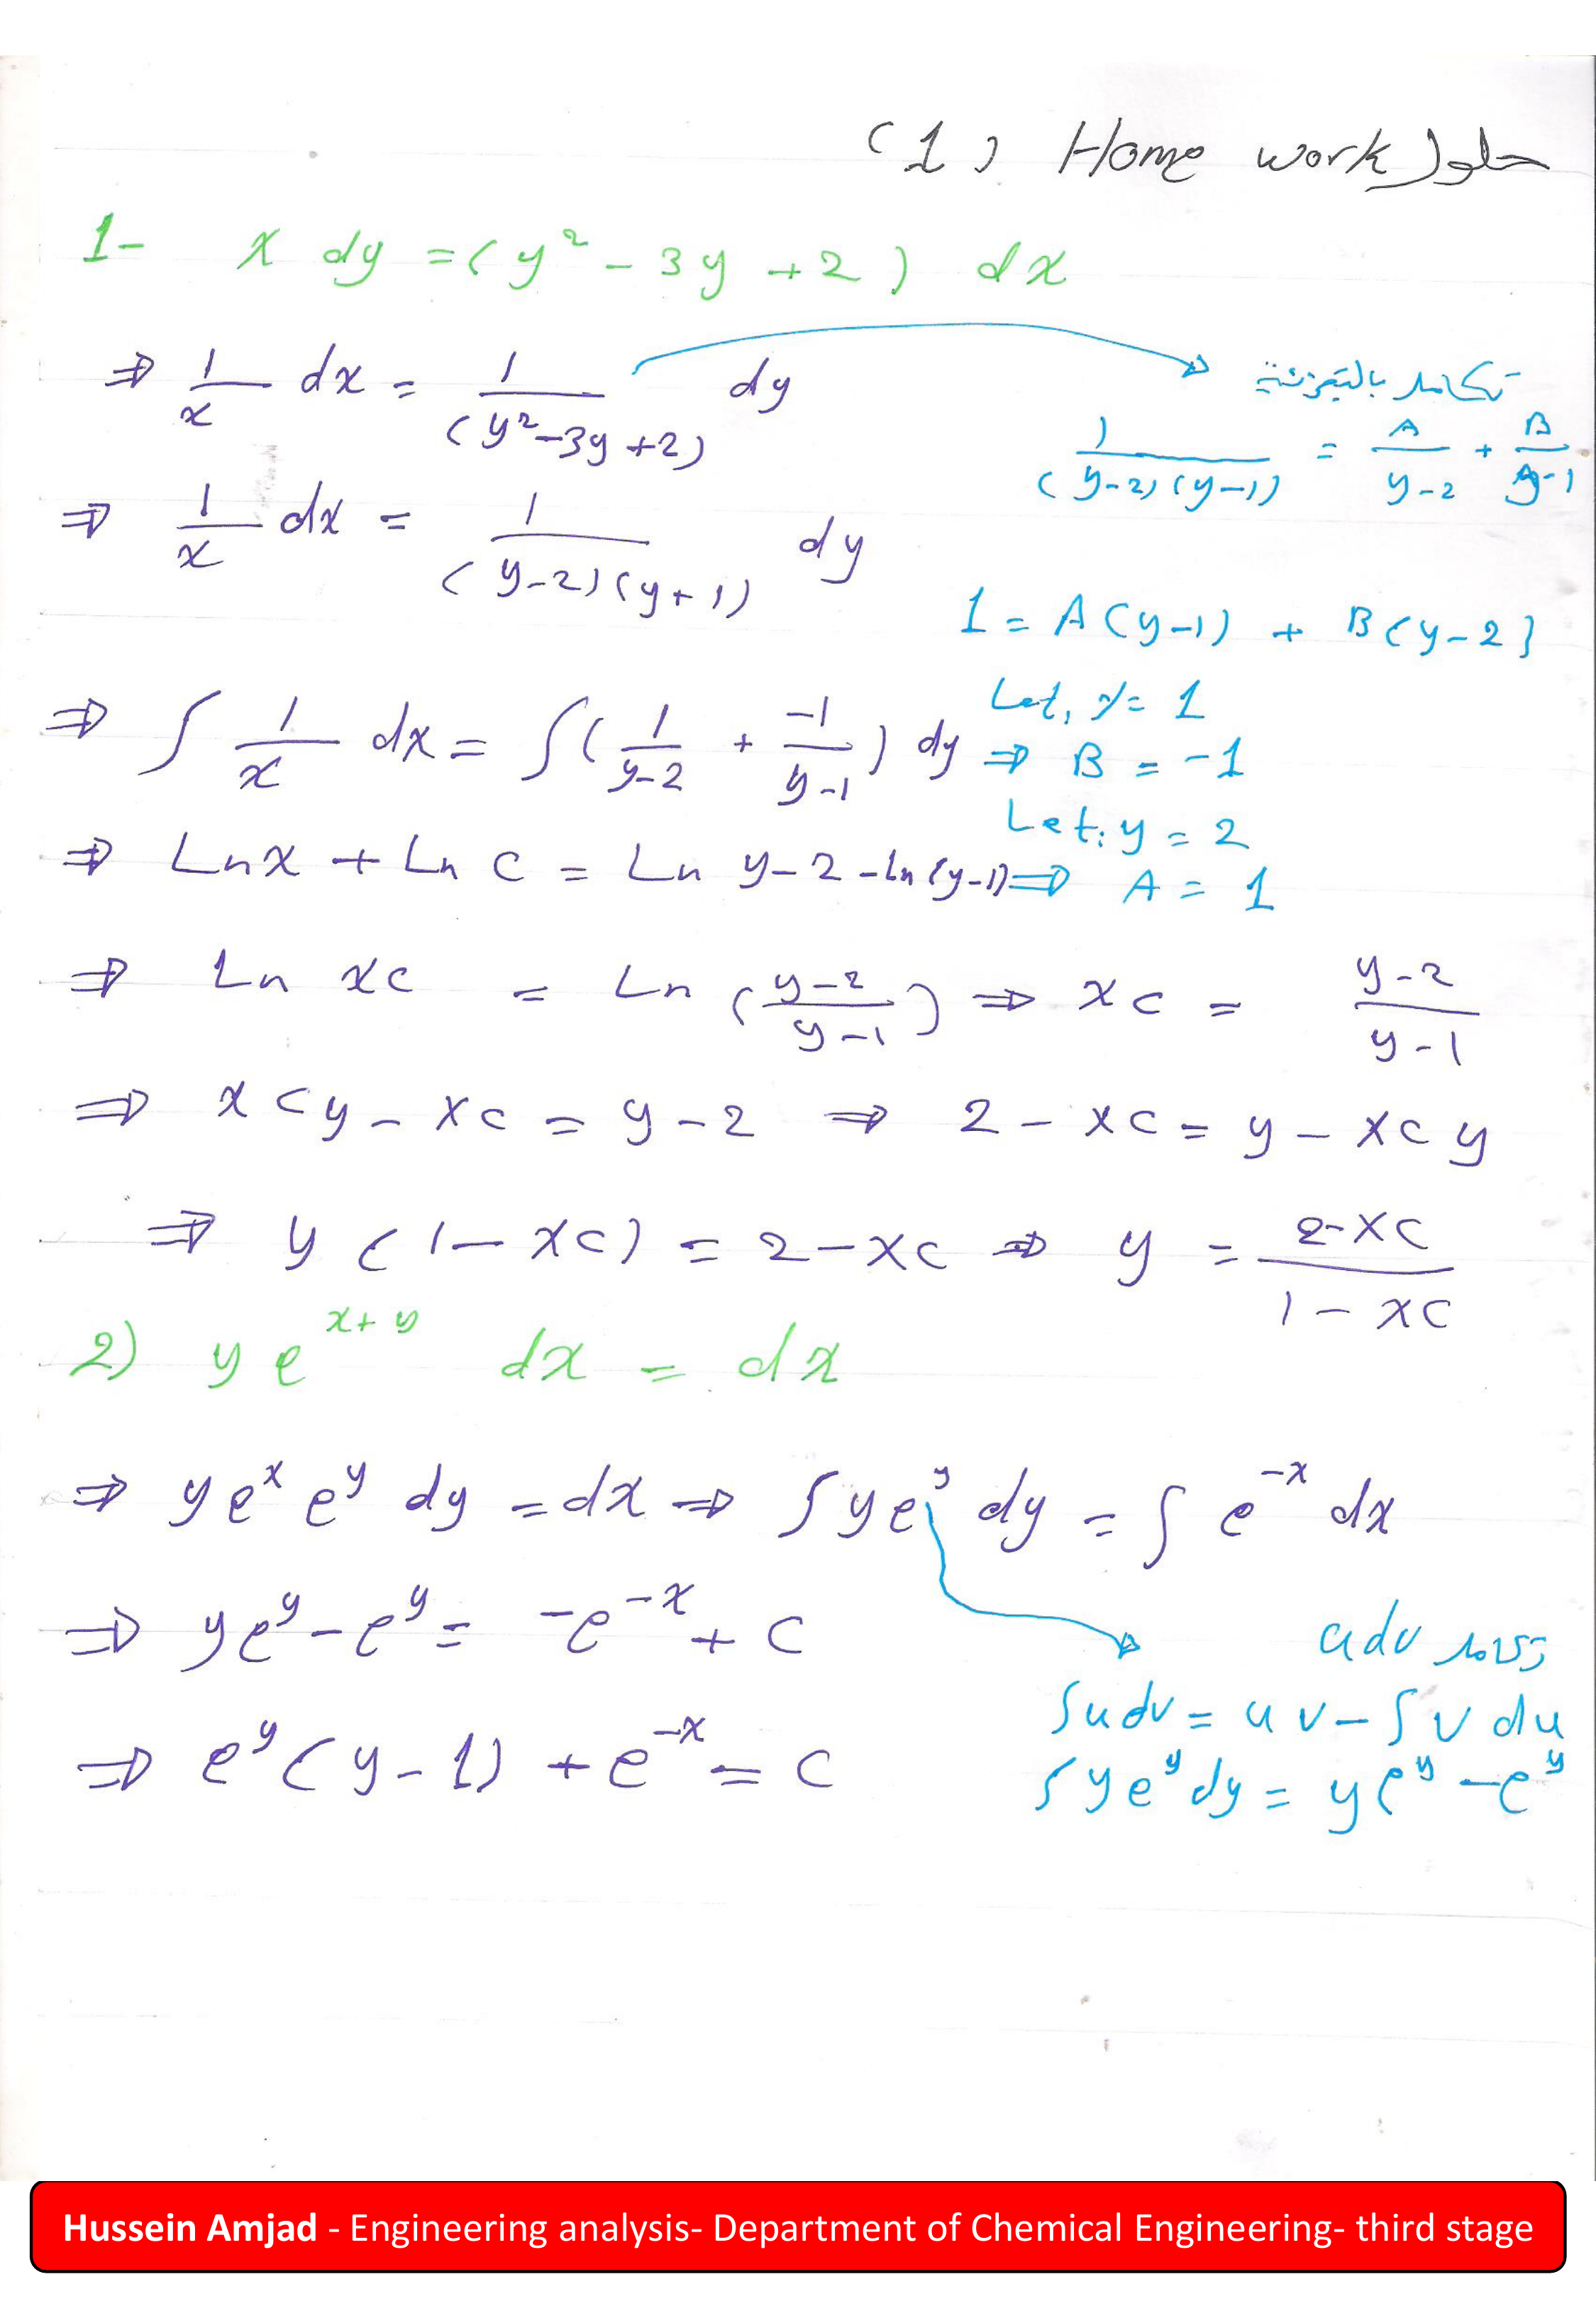 حلول Home work (1)
1- x dy = (y² - 3y + 2) dx
⇒ 1/x dx = 1/(y²-3y+2) dy
تكامل بالتجزئة
1/((y-2)(y-1)) = A/(y-2) + B/(y-1)
⇒ 1/x dx = 1/((y-2)(y+1)) dy
1 = A(y-1) + B(y-2)
Let, y = 1
⇒ ∫ 1/x dx = ∫(1/(y-2) + -1/(y-1)) dy
⇒ B = -1
Let: y = 2
⇒ Lnx + Ln c = Ln y-2 - Ln(y-1)
⇒ A = 1
⇒ Ln xc = Ln ((y-2)/(y-1)) ⇒ xc = (y-2)/(y-1)
⇒ xcy - xc = y-2 ⇒ 2 - xc = y - xcy
⇒ y (1 - xc) = 2 - xc ⇒ y = (2-xc)/(1-xc)
2) y e^(x+y) dx = dx
⇒ y eˣ e^y dy = dx ⇒ ∫ y e^y dy = ∫ e^(-x) dx
⇒ y e^y - e^y = -e^(-x) + c
تكامل udv
∫udv = uv - ∫v du
⇒ e^y (y - 1) + e^(-x) = c
∫y e^y dy = y e^y - e^y
Hussein Amjad - Engineering analysis- Department of Chemical Engineering- third stage